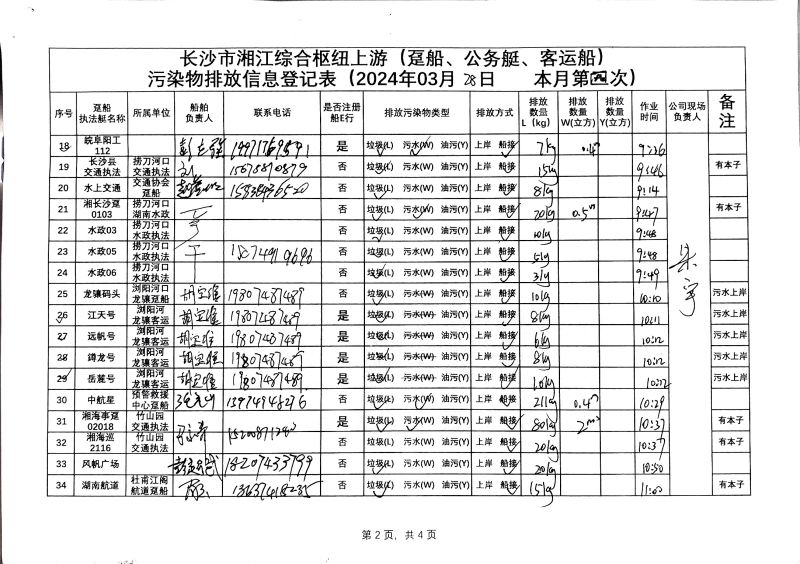 长沙市湘江综合枢纽上游（趸船、公务艇、客运船）
污染物排放信息登记表（2024年03月28日 本月第四次）
序号 趸船执法艇名称 所属单位 船舶负责人 联系电话 是否注册船E行 排放污染物类型 排放方式 排放数量L（kg） 排放数量W(立方) 排放数量Y(立方) 作业时间 公司现场负责人 备注
18 皖阜阳工112 是 垃圾(L) 污水(W) 油污(Y) 上岸 船接 7kg 9:36
19 长沙县交通执法 捞刀河口交通执法 15675870879 否 垃圾(L) 污水(W) 油污(Y) 上岸 船接 15kg 9:46 有本子
20 水上交通 交通协会趸船 否 垃圾(L) 污水(W) 油污(Y) 上岸 船接 8kg 9:14
21 湘长沙趸0103 捞刀河口湖南水政 否 垃圾(L) 污水(W) 油污(Y) 上岸 船接 20kg 0.5 9:47 有本子
22 水政03 捞刀河口水政执法 否 垃圾(L) 污水(W) 油污(Y) 上岸 船接 10kg 9:48
23 水政05 捞刀河口水政执法 否 垃圾(L) 污水(W) 油污(Y) 上岸 船接 5kg 9:48
24 水政06 捞刀河口水政执法 否 垃圾(L) 污水(W) 油污(Y) 上岸 船接 3kg 9:49
25 龙骧码头 浏阳河龙骧趸船 19807487489 否 垃圾(L) 污水(W) 油污(Y) 上岸 船接 10kg 10:10 污水上岸
26 江天号 浏阳河龙骧客运 19807487489 是 垃圾(L) 污水(W) 油污(Y) 上岸 船接 8kg 10:11 污水上岸
27 远帆号 浏阳河龙骧客运 19807487489 是 垃圾(L) 污水(W) 油污(Y) 上岸 船接 6kg 10:12 污水上岸
28 鐏龙号 浏阳河龙骧客运 19807487489 是 垃圾(L) 污水(W) 油污(Y) 上岸 船接 8kg 10:12 污水上岸
29 岳麓号 浏阳河龙骧客运 19807487489 是 垃圾(L) 污水(W) 油污(Y) 上岸 船接 10kg 10:12 污水上岸
30 中航星 预警救援中心趸船 13974948276 否 垃圾(L) 污水(W) 油污(Y) 上岸 船接 21kg 10:29
31 湘海事趸02018 竹山园交通执法 是 垃圾(L) 污水(W) 油污(Y) 上岸 船接 80kg 2m³ 10:37 有本子
32 湘海巡2116 竹山园交通执法 否 垃圾(L) 污水(W) 油污(Y) 上岸 船接 20kg 10:37 有本子
33 风帆广场 18207433799 否 垃圾(L) 污水(W) 油污(Y) 上岸 船接 20kg 10:50
34 湖南航道 杜甫江阁航道趸船 13637418235 否 垃圾(L) 污水(W) 油污(Y) 上岸 船接 15kg 11:02 有本子
第 2 页，共 4 页